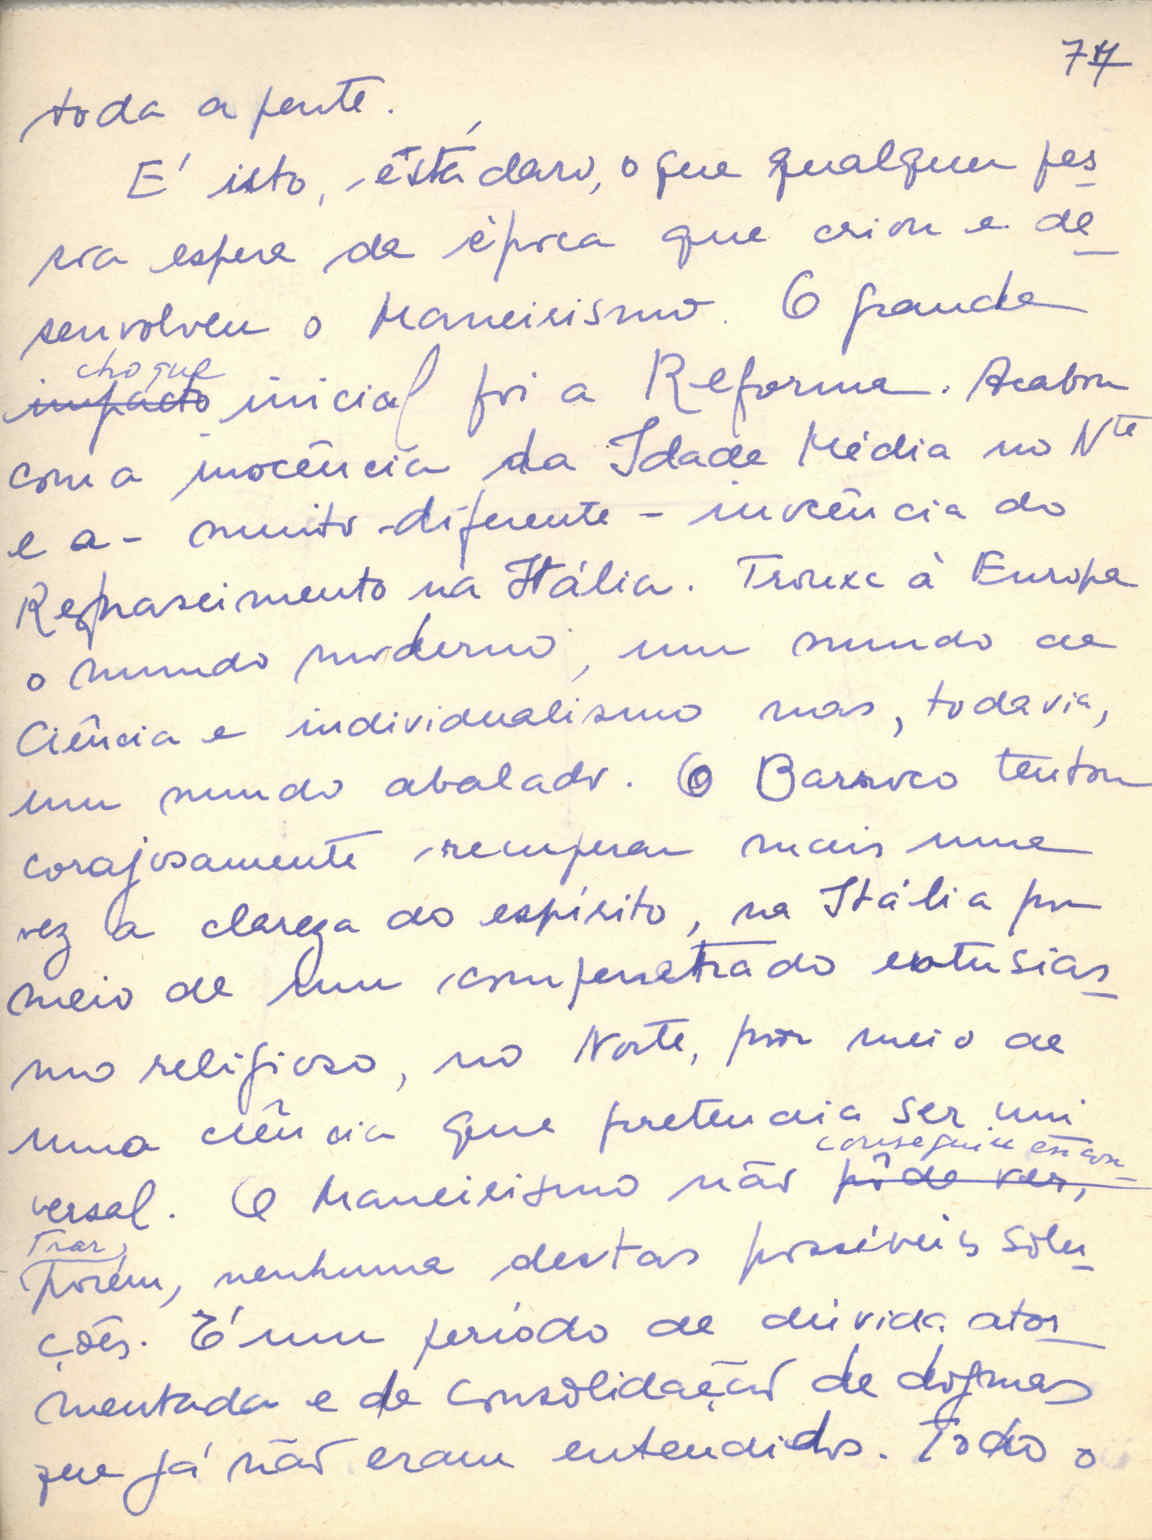 77
toda a gente.
É isto, está claro, o que qualquer pes
soa espera da época que criou e de
senvolveu o Maneirismo. O grande
choque
impacto inicial foi a Reforma. Acabou
com a inocência da Idade Média no Nte
e a - muito diferente - inocência do
Renascimento na Itália. Trouxe à Europa
o mundo moderno, um mundo de
Ciência e individualismo mas, todavia,
um mundo abalado. O Barroco tentou
corajosamente recuperar mais uma
vez a clareza do espírito, na Itália por
meio de um compenetrado entusias
mo religioso, no Norte, por meio de
uma ciência que pretendia ser uni
conseguiu encon-
versal. O Maneirismo não pôde ver,
trar,
porém, nenhuma destas possíveis solu
ções. É um período de dúvida ator
mentada e de consolidação de dogmas
que já não eram entendidos. Todo o